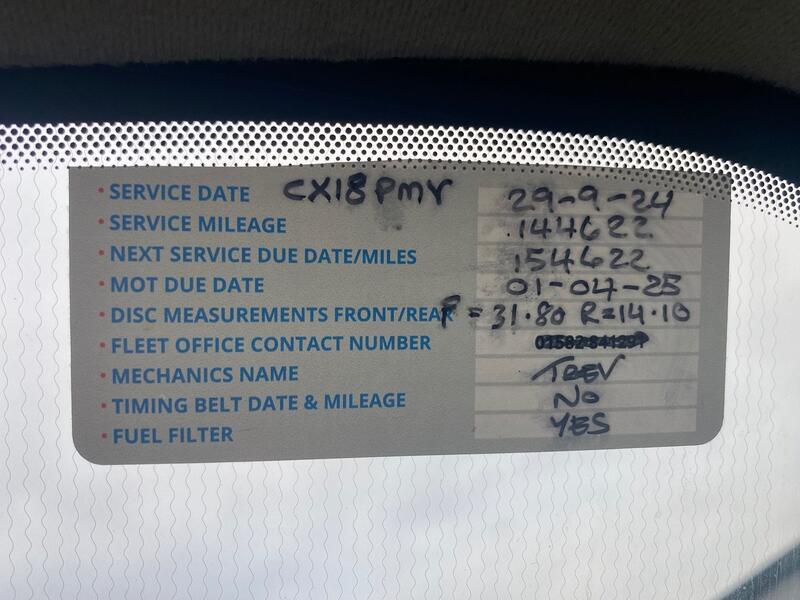 • SERVICE DATE CX18PMV 29-9-24
• SERVICE MILEAGE 144622
• NEXT SERVICE DUE DATE/MILES 154622
• MOT DUE DATE 01-04-25
• DISC MEASUREMENTS FRONT/REAR F = 31.80 R=14.10
• FLEET OFFICE CONTACT NUMBER
• MECHANICS NAME TREV
• TIMING BELT DATE & MILEAGE NO
• FUEL FILTER YES